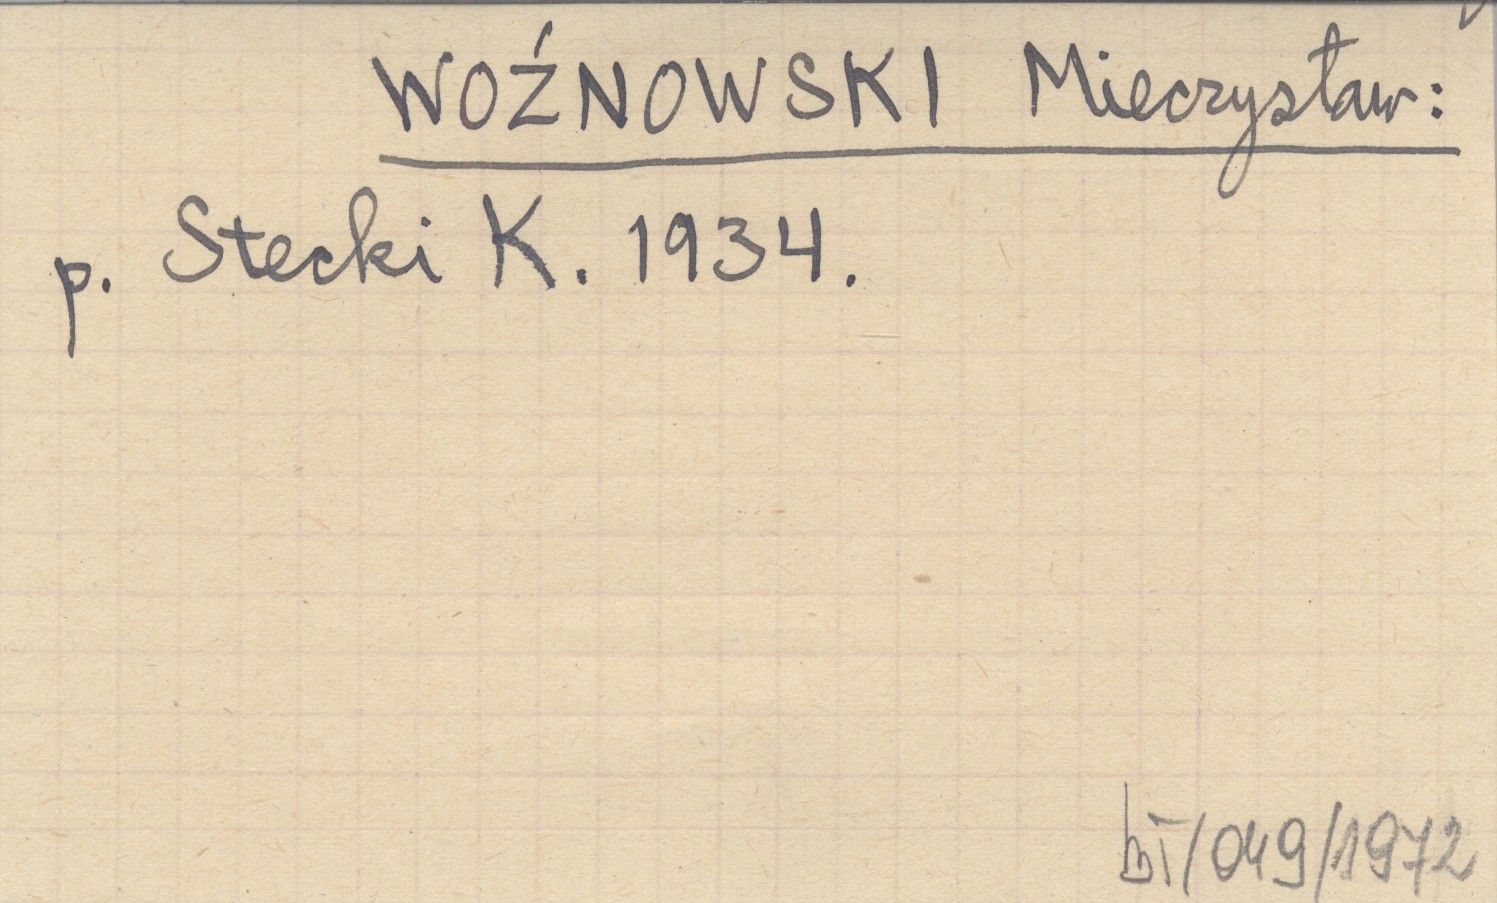 WOŹNOWSKI Mieczysław:
p. Stecki K. 1934.
/049/1972